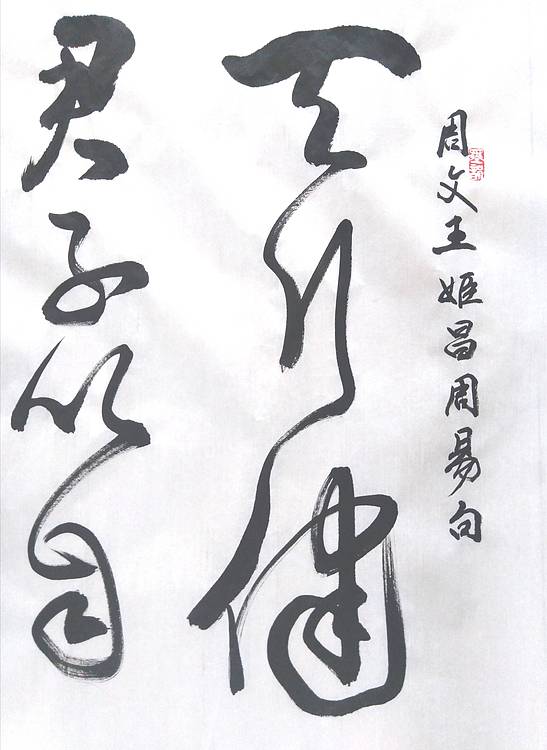 周文王姬昌周易句
天行健
君子以自